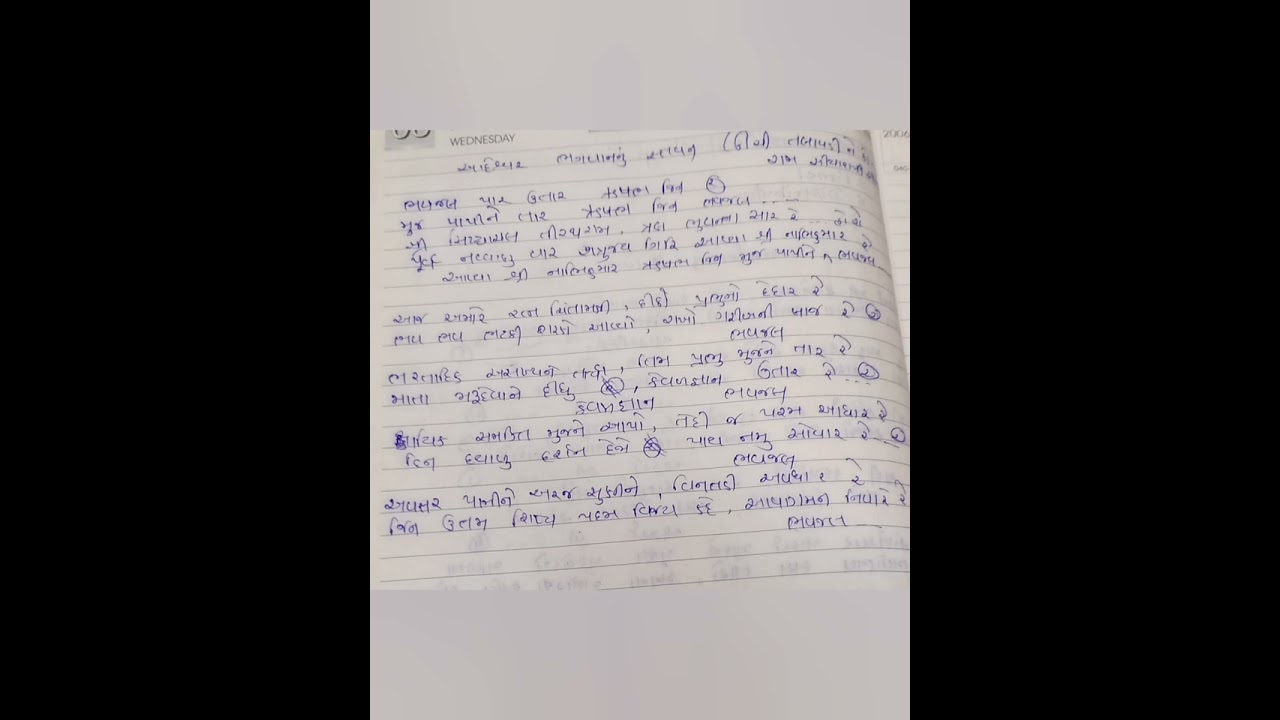 WEDNESDAY
2006
આદિશ્વર ભગવાનનું સ્તવન (ઊંચી તલાવડી ને
રામ સીતાની
ભવજલ પાર ઉતાર ઋષભ જિન ૨
મુજ પાપીને તાર ઋષભ જિન ભવજલ .....
શ્રી સિધ્ધાચલ તીરથરાજ, ત્રણ ભુવનમા સાર રે ...
પૂર્વ નવ્વાણુ વાર શત્રુંજય ગિરિ આવ્યા શ્રી નાભિકુમાર રે
આવ્યા શ્રી નાભિકુમાર ઋષભ જિન મુજ પાપીને ભવજલ
આજ અમારે રત્ન ચિંતામણી, દીઠો પ્રભુનો દેદાર રે
ભવ ભવ ભટકી શરણે આવ્યો, રાખો ગરીબની લાજ રે ૨
ભવજલ
ભરતાદિક અસંખ્યને તાર્યા, તિમ પ્રભુ મુજને તાર રે
માતા મરૂદેવાને દીધુ, કેવળજ્ઞાન ઉતાર રે ... ૨
કેવળજ્ઞાન ભવજલ
ક્ષાયિક સમકિત મુજને આપો, તેહી જ પરમ આધાર રે
દિન દયાળુ દર્શન દેજે પાય નમુ સોવાર રે ... ૨
ભવજલ
અવસર પામીને અરજ સુણીને, વિનતડી અવધાર રે
જિન ઉત્તમ શિષ્ય પદ્મ વિજય કહે, આવાગમન નિવાર રે
ભવજલ ....